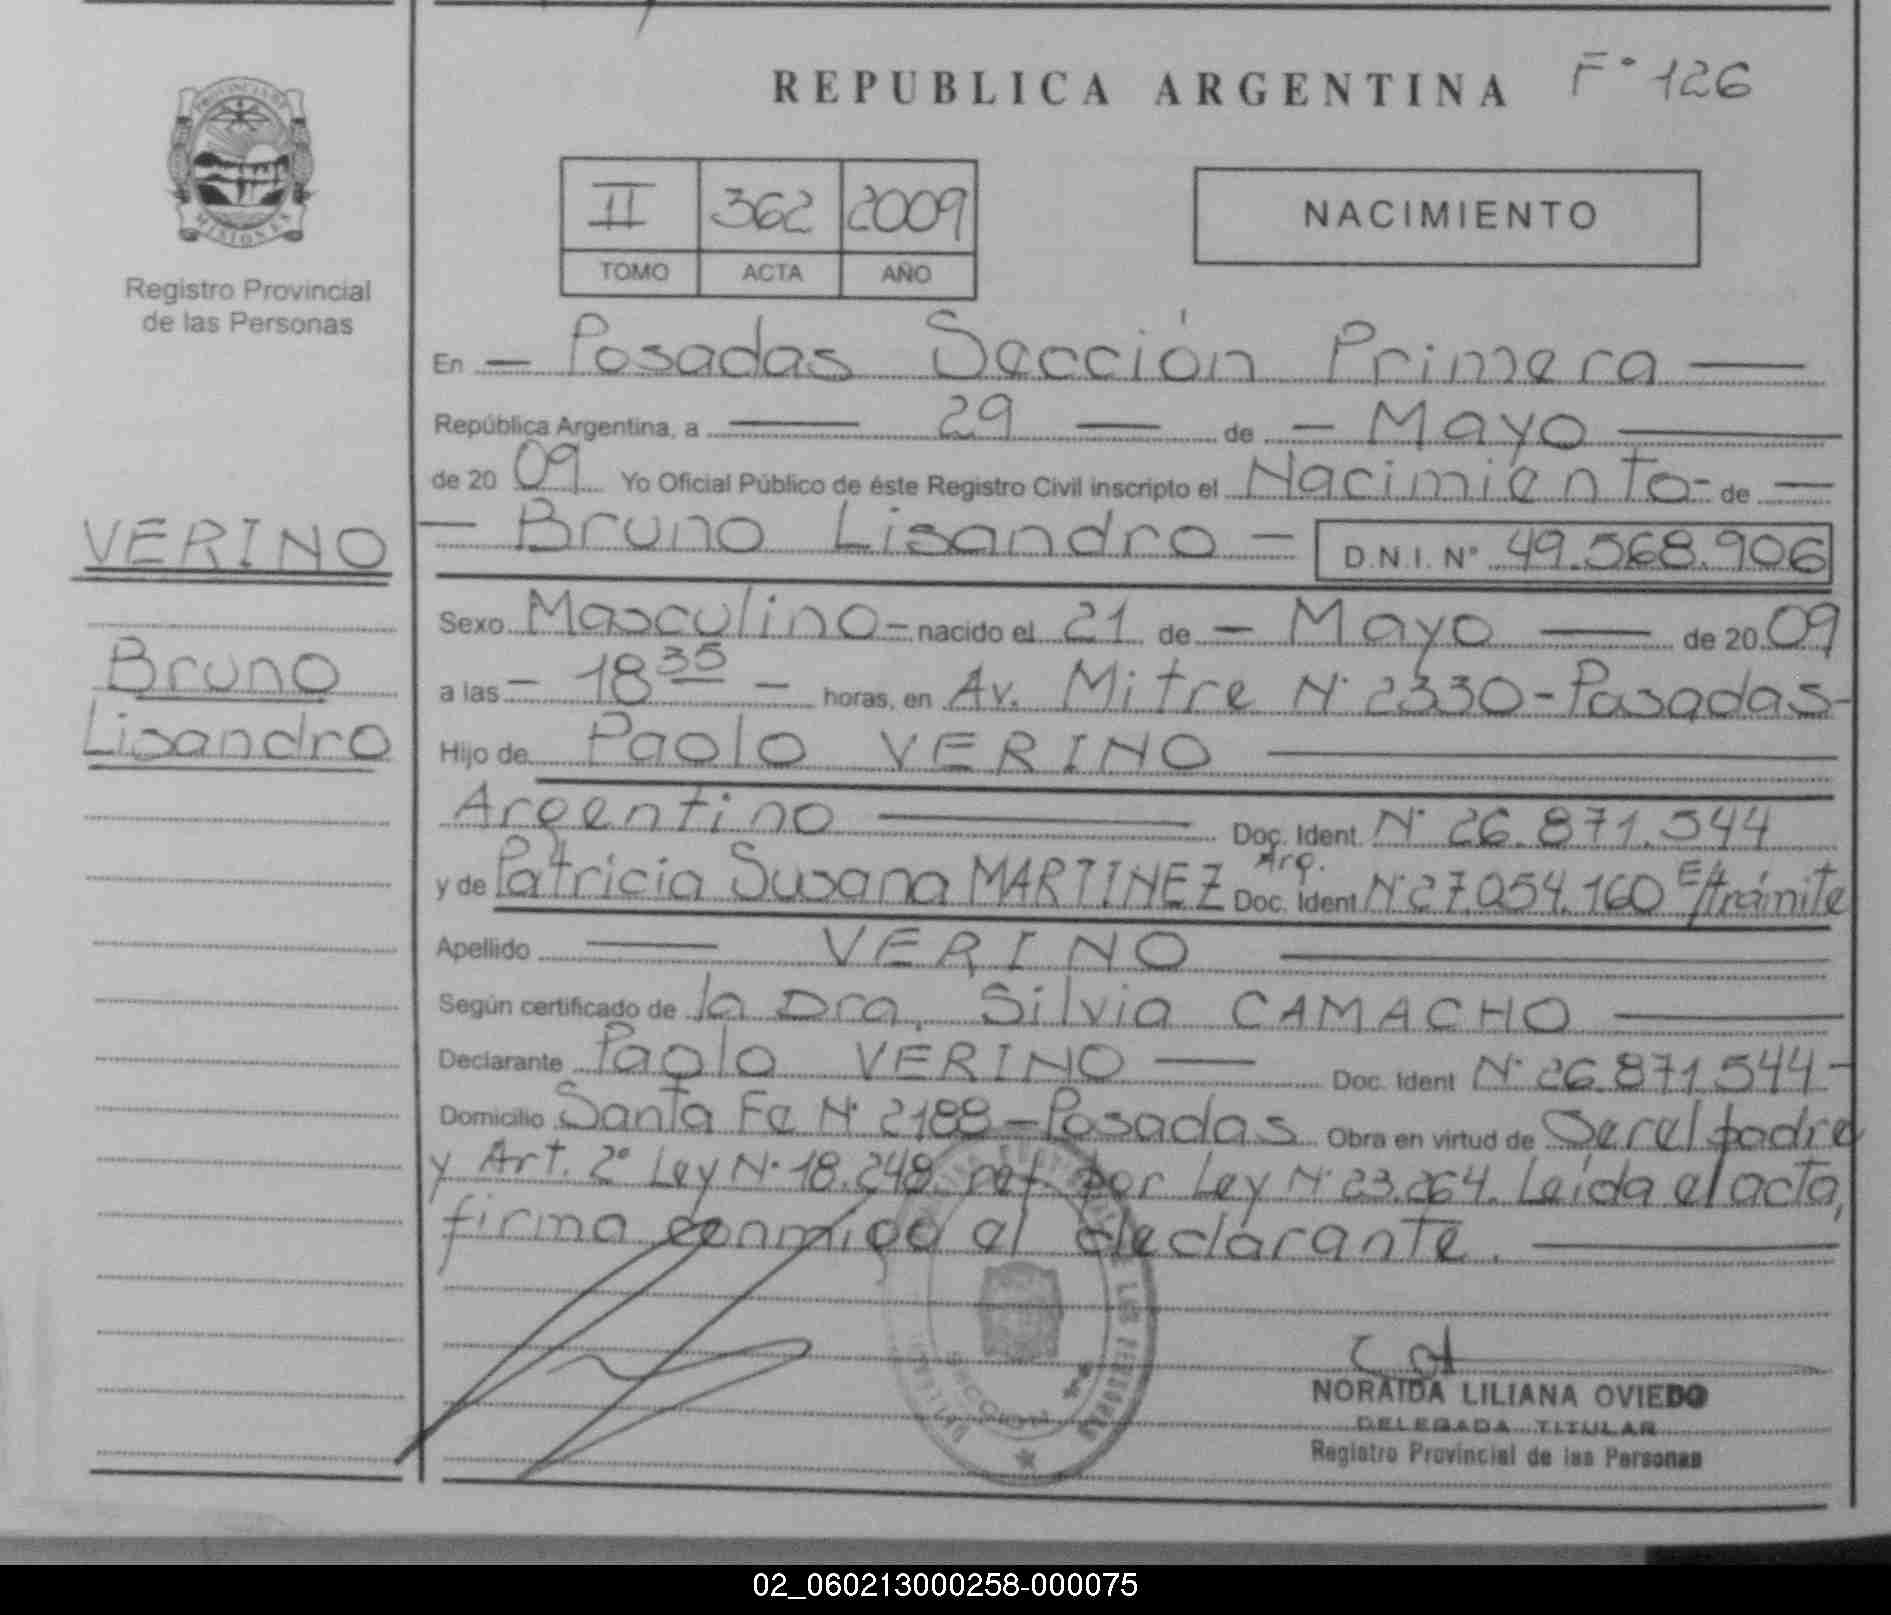 REPUBLICA ARGENTINA F° 126
PROVINCIA DE
MISIONES
Registro Provincial
de las Personas
II 362 2009
TOMO ACTA AÑO
NACIMIENTO
VERINO
Bruno
Lisandro
En — Posadas Sección Primera —
República Argentina, a — 29 — de — Mayo —
de 20 09 Yo Oficial Público de éste Registro Civil inscripto el Nacimiento - de —
— Bruno Lisandro — D.N.I. N° 49.568.906
Sexo Masculino - nacido el 21 de — Mayo — de 20 09
a las — 18 35 — horas, en Av. Mitre N° 2330 - Posadas -
Hijo de Paolo VERINO —
Argentino — Doc. Ident. N° 26.871.544
y de Patricia Susana MARTINEZ Arg. Doc. Ident N° 27.054.160 E/trámite
Apellido — VERINO —
Según certificado de la Dra. Silvia CAMACHO —
Declarante Paolo VERINO — Doc. Ident N° 26.871.544 -
Domicilio Santa Fe N° 2188 - Posadas Obra en virtud de Ser el padre
y Art. 2° Ley N° 18.248 ref. por Ley N° 23.264. Leída el acta,
firma conmigo el declarante. —
NORAIDA LILIANA OVIEDO
DELEGADA TITULAR
Registro Provincial de las Personas
02_060213000258-000075